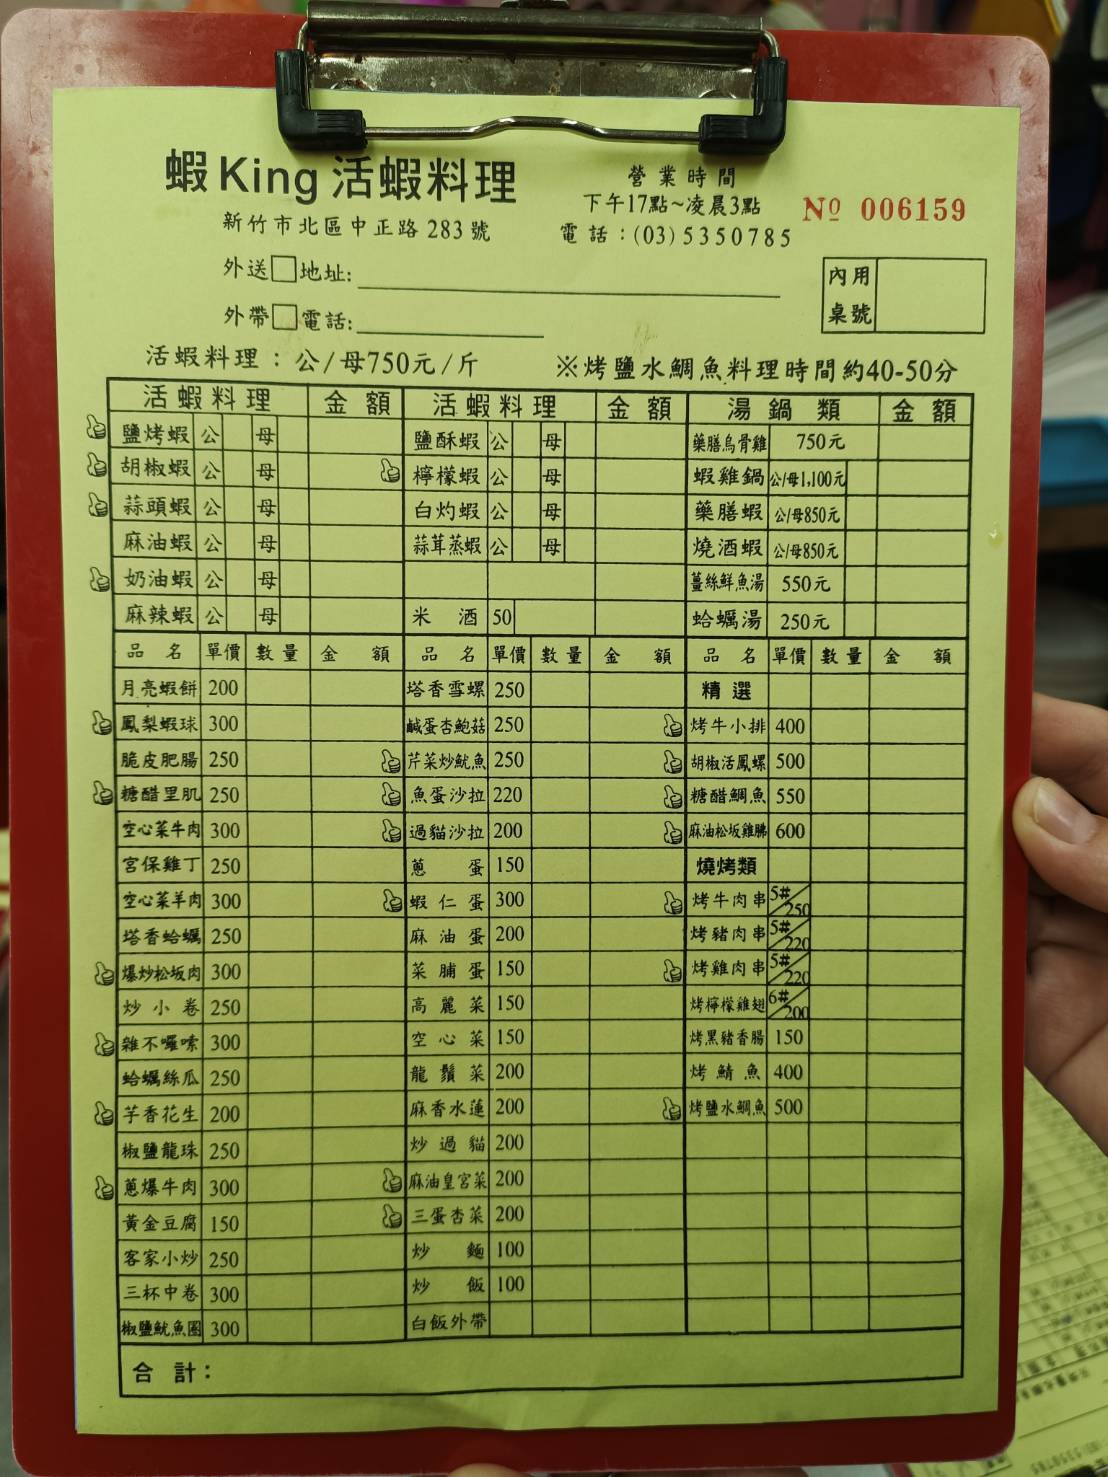 蝦King 活蝦料理
新竹市北區中正路 283 號
營業時間
下午17點~凌晨3點
電話:(03)5350785
№ 006159
外送□地址:
外帶□電話:
內用
桌號
活蝦料理:公/母750元/斤
※烤鹽水鯛魚料理時間約40-50分
活蝦料理 金額 活蝦料理 金額 湯鍋類 金額
鹽烤蝦 公 母 鹽酥蝦 公 母 藥膳烏骨雞 750元
胡椒蝦 公 母 檸檬蝦 公 母 蝦雞鍋 公/母1,100元
蒜頭蝦 公 母 白灼蝦 公 母 藥膳蝦 公/母850元
麻油蝦 公 母 蒜茸蒸蝦 公 母 燒酒蝦 公/母850元
奶油蝦 公 母 薑絲鮮魚湯 550元
麻辣蝦 公 母 米酒 50 蛤蠣湯 250元
品名 單價 數量 金額 品名 單價 數量 金額 品名 單價 數量 金額
月亮蝦餅 200 塔香雪螺 250 精選
鳳梨蝦球 300 鹹蛋杏鮑菇 250 烤牛小排 400
脆皮肥腸 250 芹菜炒魷魚 250 胡椒活鳳螺 500
糖醋里肌 250 魚蛋沙拉 220 糖醋鯛魚 550
空心菜牛肉 300 過貓沙拉 200 麻油松坂雞腿 600
宮保雞丁 250 蔥蛋 150 燒烤類
空心菜羊肉 300 蝦仁蛋 300 烤牛肉串 5#/250
塔香蛤蠣 250 麻油蛋 200 烤豬肉串 5#/220
爆炒松坂肉 300 菜脯蛋 150 烤雞肉串 5#/220
炒小卷 250 高麗菜 150 烤檸檬雞翅 6#/200
雜不囉嗦 300 空心菜 150 烤黑豬香腸 150
蛤蠣絲瓜 250 龍鬚菜 200 烤鯖魚 400
芋香花生 200 麻香水蓮 200 烤鹽水鯛魚 500
椒鹽龍珠 250 炒過貓 200
蔥爆牛肉 300 麻油皇宮菜 200
黃金豆腐 150 三蛋杏菜 200
客家小炒 250 炒麵 100
三杯中卷 300 炒飯 100
椒鹽魷魚圈 300 白飯外帶
合計: